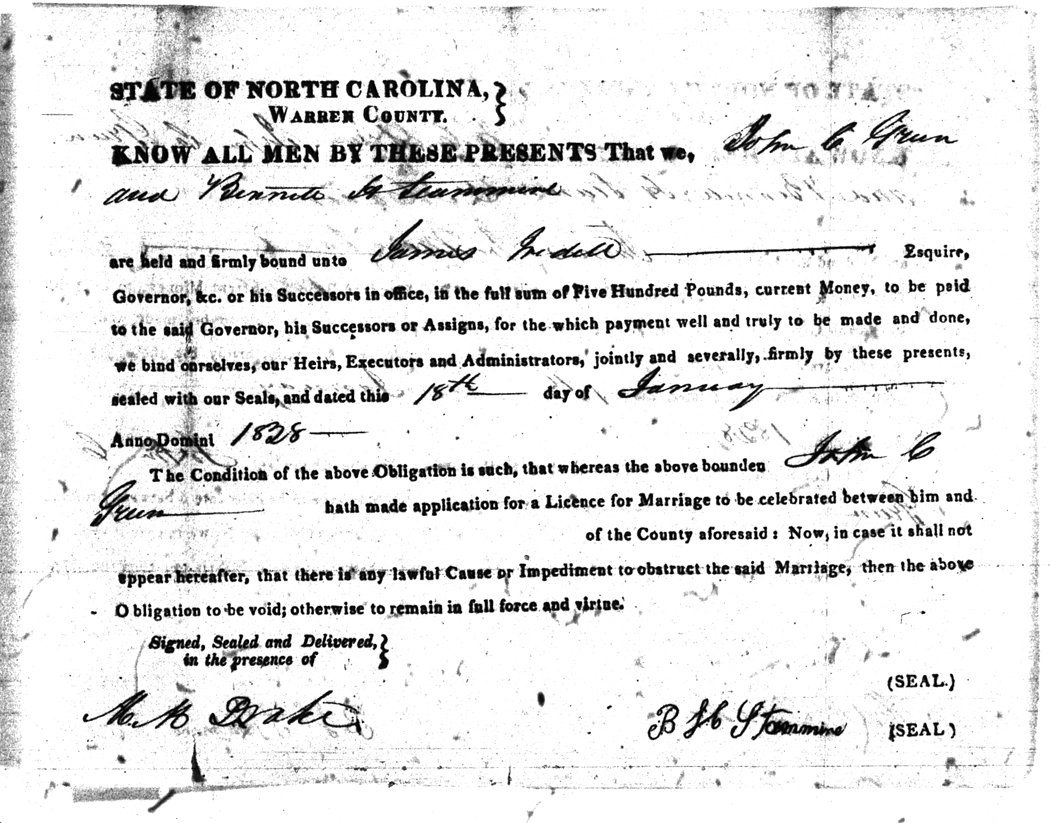 STATE OF NORTH CAROLINA,
WARREN COUNTY.
KNOW ALL MEN BY THESE PRESENTS That we, John C Green
and Bennett
are held and firmly bound unto James Iredell Esquire,
Governor, &c. or his Successors in office, in the full sum of Five Hundred Pounds, current Money, to be paid
to the said Governor, his Successors or Assigns, for the which payment well and truly to be made and done,
we bind ourselves, our Heirs, Executors and Administrators, jointly and severally, firmly by these presents,
sealed with our Seals, and dated this 18th day of January
Anno Domini 1828
The Condition of the above Obligation is such, that whereas the above bounden John C
Green hath made application for a Licence for Marriage to be celebrated between him and
of the County aforesaid: Now, in case it shall not
appear hereafter, that there is any lawful Cause or Impediment to obstruct the said Marriage, then the above
Obligation to be void; otherwise to remain in full force and virtue.
Signed, Sealed and Delivered,
in the presence of
(SEAL.)
M. M Drake B (SEAL)